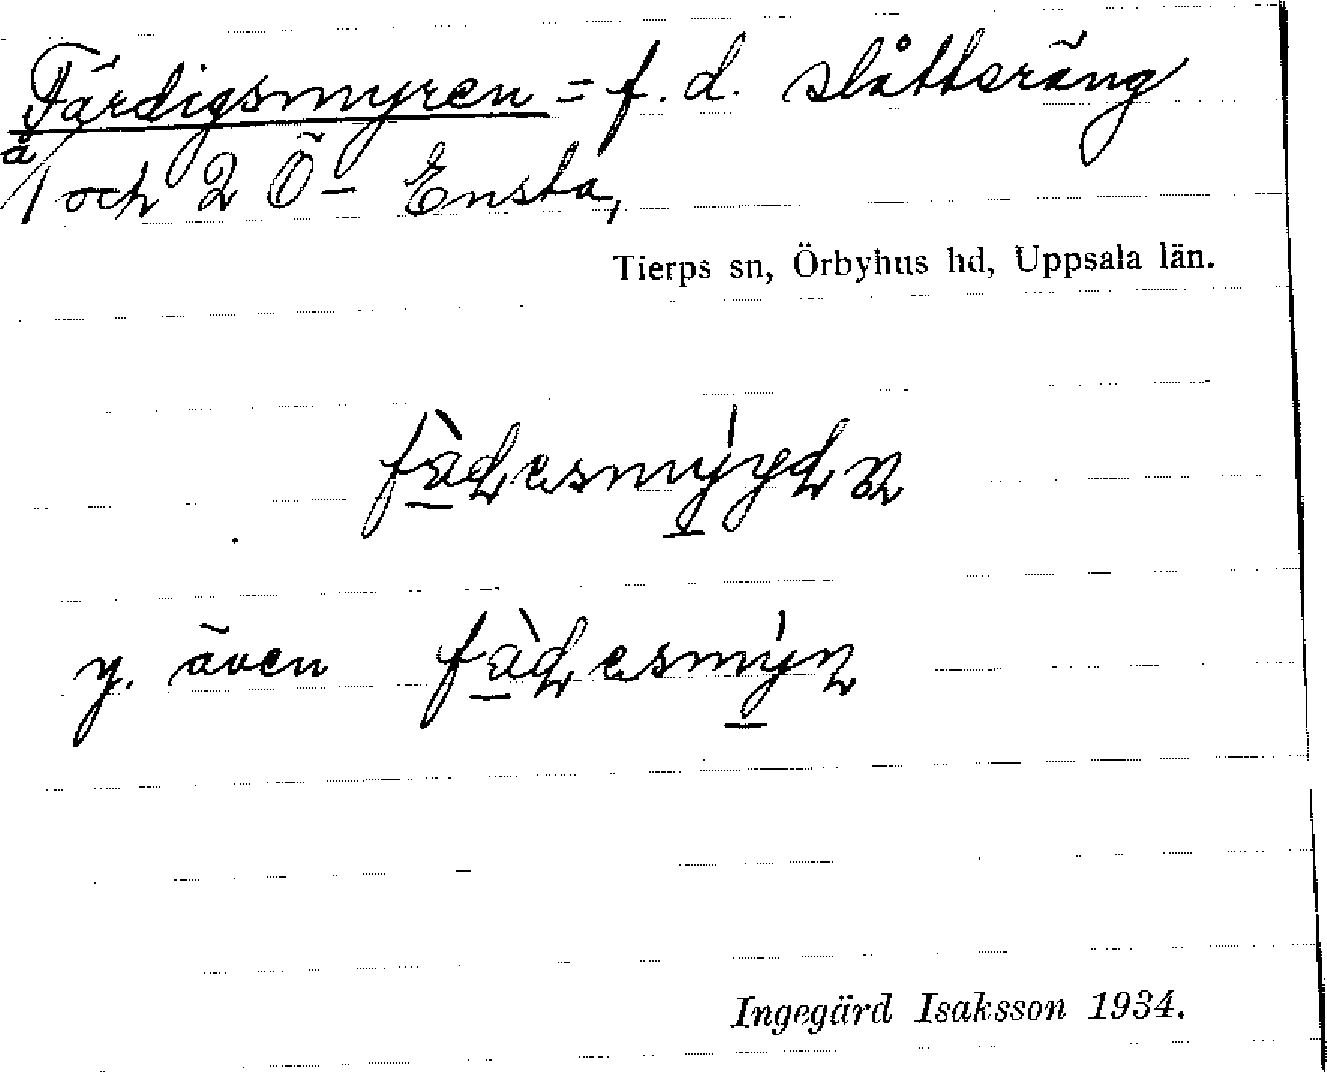 Färdigsmyren = f. d. slåtteräng
å
1 och 2 Ö - Ensta,
Tierps sn, Örbyhus hd, Uppsala län.
y. även
Ingegärd Isaksson 1934.